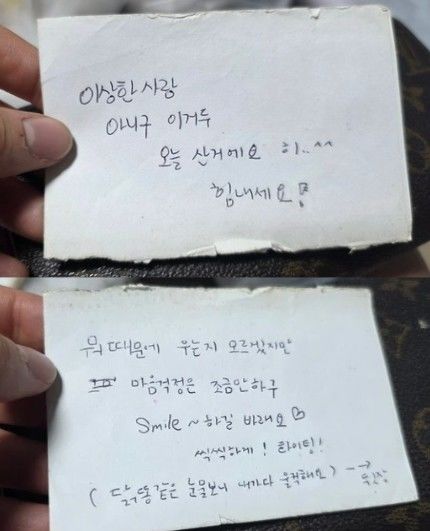 이상한 사람
아니구 이거두
오늘 산거에요 히..^^
힘내세요!
뭐 때문에 우는지 모르겠지만
마음걱정은 조금만하구
Smile ~ 하길 바래요♡
씩씩하게! 화이팅!
(닭똥같은 눈물보니 내가다 울적해요) →